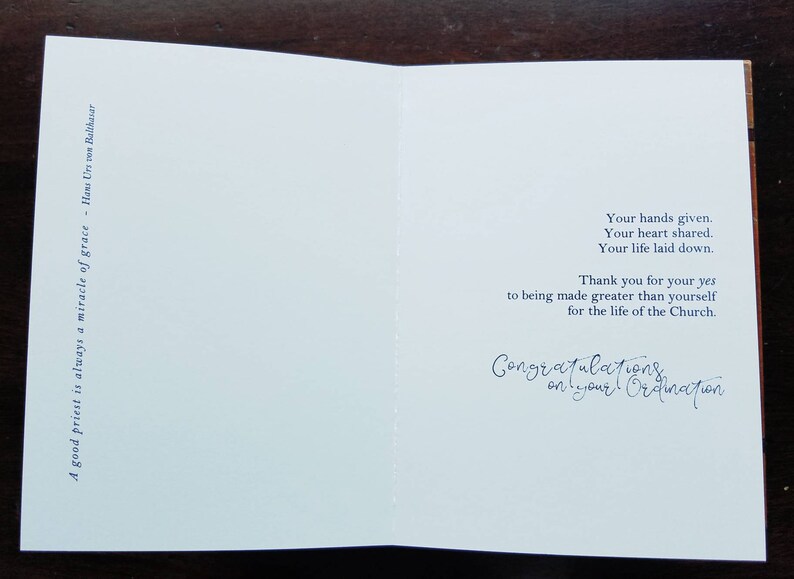 A good priest is always a miracle of grace - Hans Urs von Balthasar
Your hands given.
Your heart shared.
Your life laid down.
Thank you for your yes
to being made greater than yourself
for the life of the Church.
Congratulations
on your Ordination